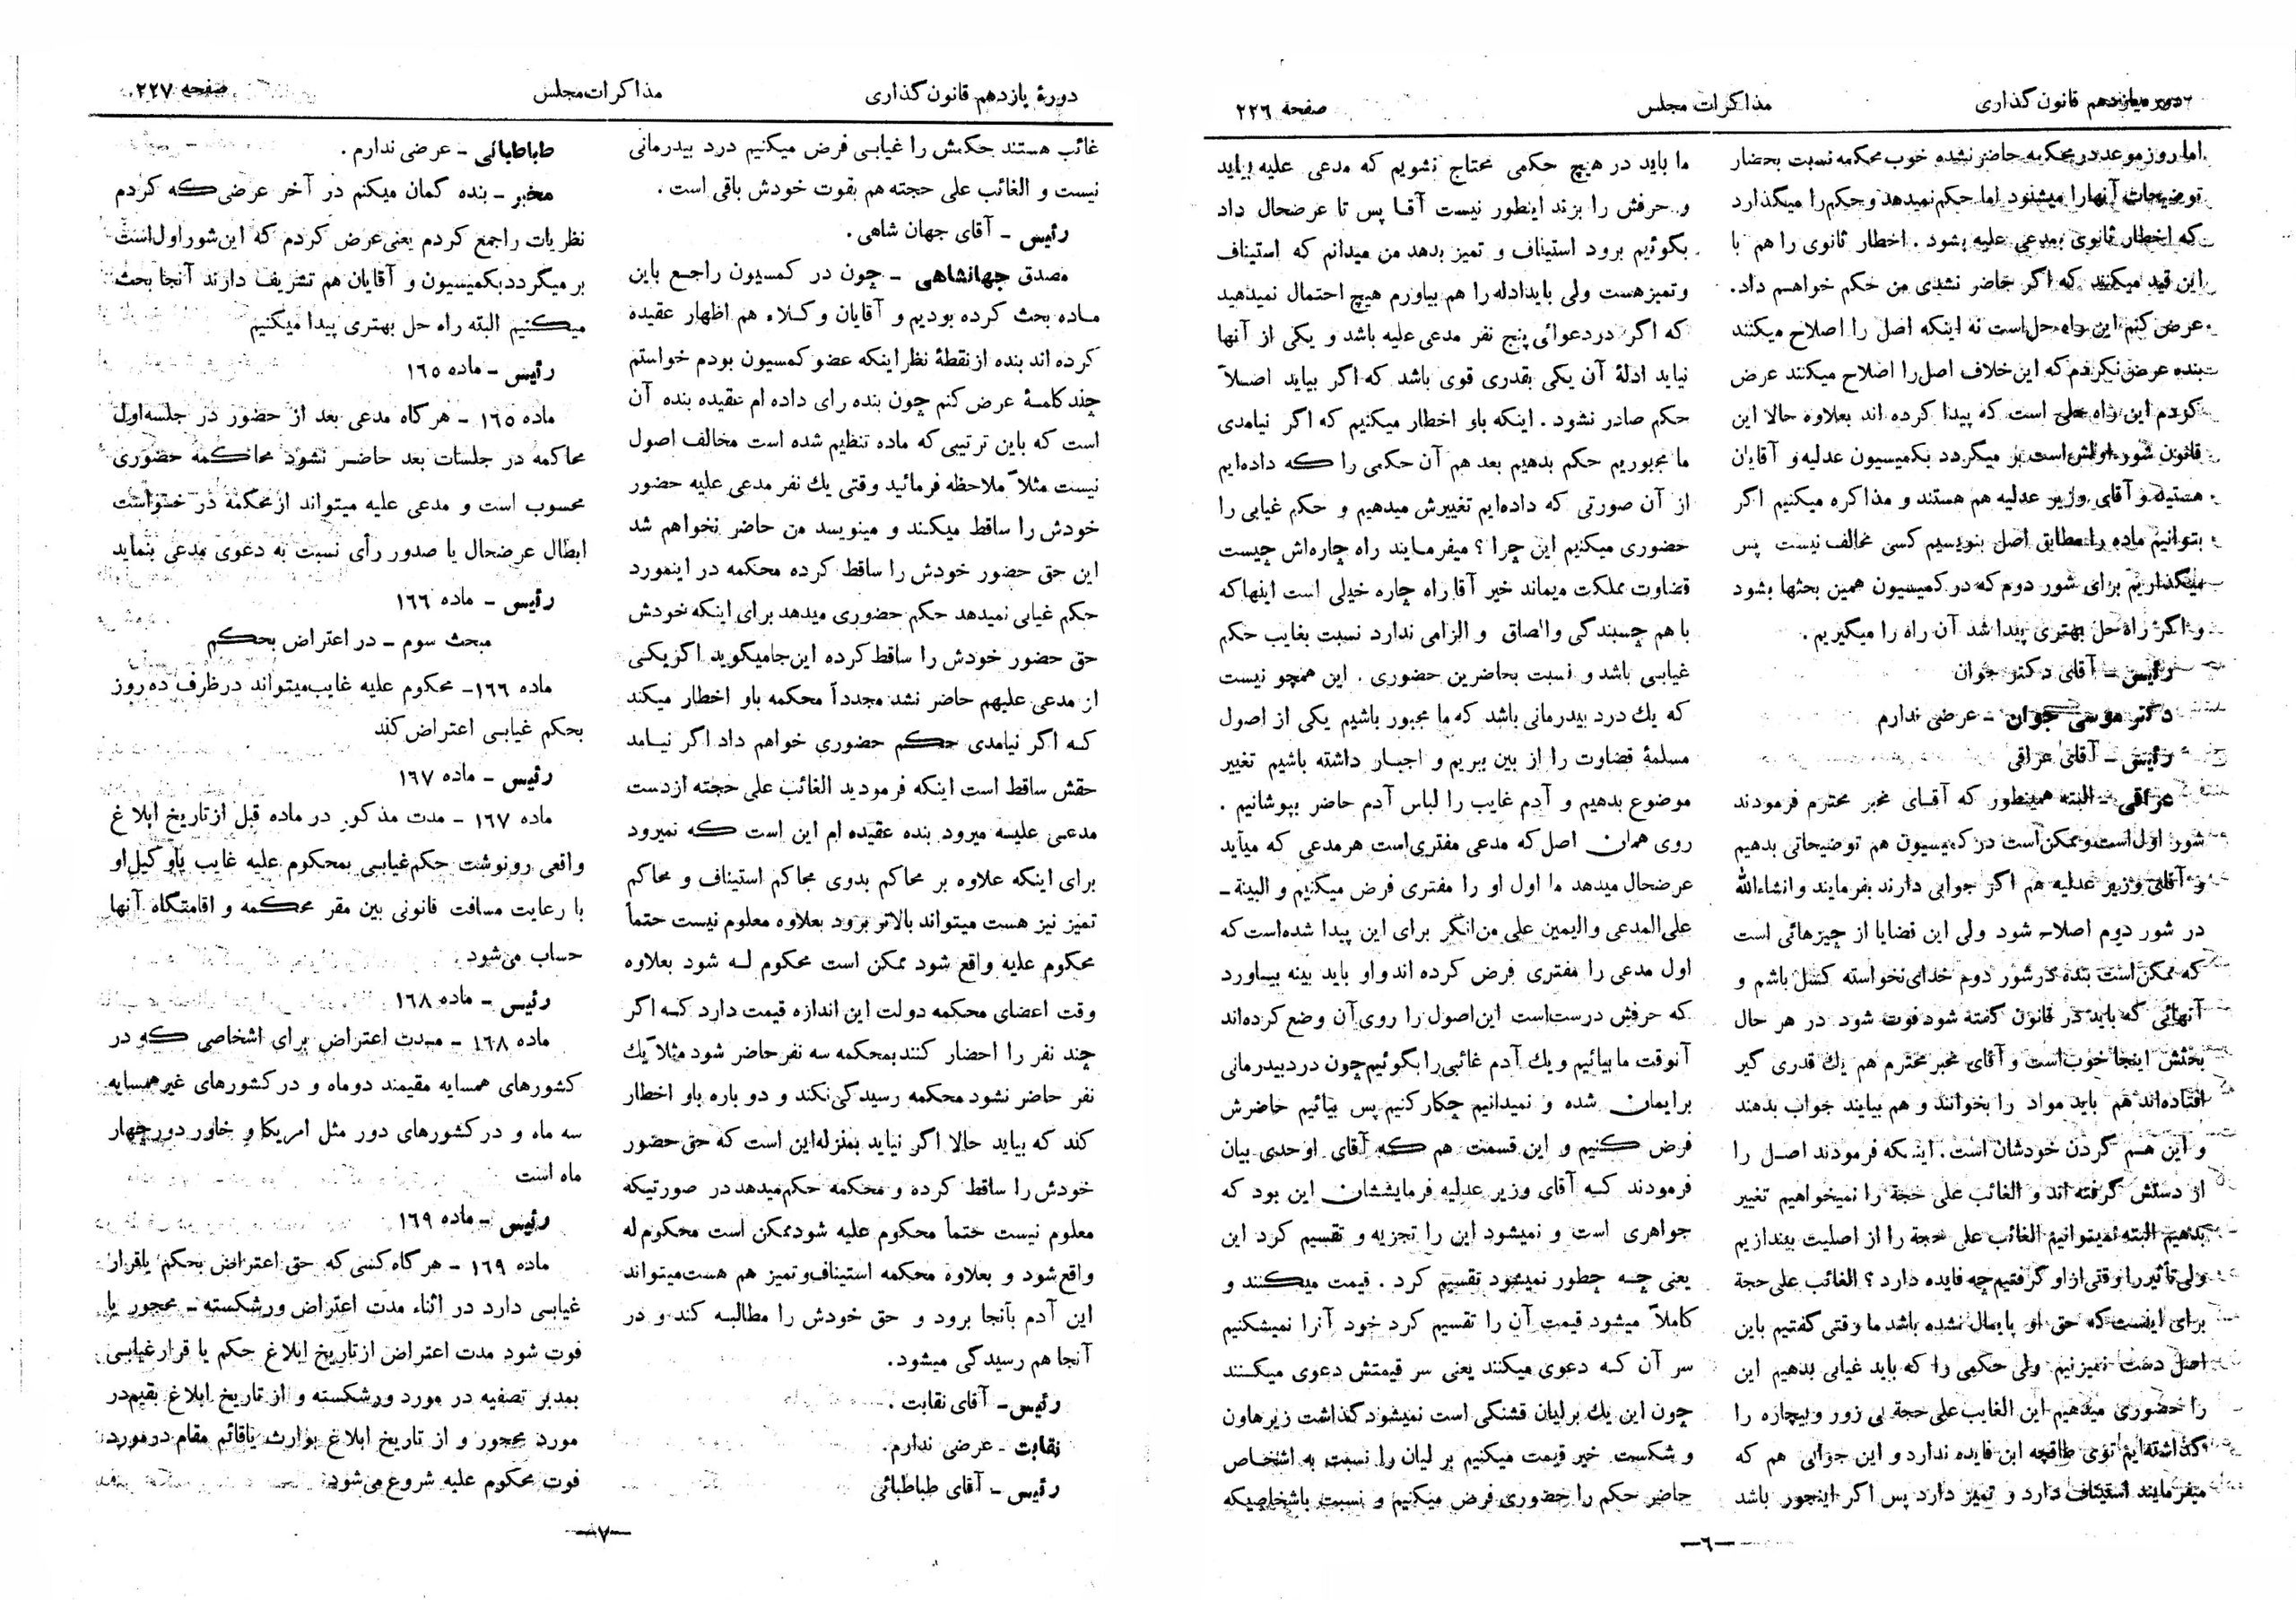 دوره یازدهم قانون گذاری
مذاکرات مجلس
صفحه ۲۲۶
اما روز موعد در محکمه حاضر نشده خوب محکمه نسبت بحضار
توضیحات آنها را میشنود اما حکم نمیدهد و حکم را میگذارد
که اخطار ثانوی بمدعی علیه بشود . اخطار ثانوی را هم با
این قید میکنند که اگر حاضر نشدی من حکم خواهم داد.
عرض کنم این راه حل است نه اینکه اصل را اصلاح میکنند
بنده عرض نکردم که این خلاف اصل را اصلاح میکنند عرض
کردم این راه حلی است که پیدا کرده اند بعلاوه حالا این
قانون شور اولش است بر میگردد بکمیسیون عدلیه و آقایان
هستید و آقای وزیر عدلیه هم هستند و مذاکره میکنیم اگر
بتوانیم ماده را مطابق اصل بنویسیم کسی مخالف نیست پس
میگذاریم برای شور دوم که در کمیسیون همین بحثها بشود
و اگر راه حل بهتری پیدا شد آن راه را میگیریم .
رئیس ـ آقای دکتر جوان
دکتر موسی جوان ـ عرضی ندارم
رئیس ـ آقای عراقی
عراقی ـ البته همینطور که آقـای مخبر محترم فرمودند
شور اول است و ممکن است در کمیسیون هم توضیحاتی بدهیم
و آقای وزیر عدلیه هم اگر جوابی دارند بفرمایند و انشاءالله
در شور دوم اصلاح شود ولی این قضایا از چیزهائی است
که ممکن است بنده در شور دوم خدای نخواسته کسل باشم و
آنهائی که باید در قانون گفته شود فوت شود در هر حال
بحثش اینجا خوب است و آقای مخبر محترم هم یك قدری گیر
افتاده اند هم باید مواد را بخوانند و هم بیایند جواب بدهند
و این هـم گردن خودشان است . اینکه فرمودند اصـل را
از دستش گرفته اند و الغائب علی حجة را نمیخواهیم تغییر
بدهیم البته نمیتوانیم الغائب علی حجة را از اصلیت بیندازیم
ولی تأثیر را وقتی از او گرفتیم چه فایده دارد ؟ الغائب علی حجة
برای اینست که حق او پایمال نشده باشد ما وقتی گفتیم باین
اصل دست نمیزنیم ولی حکمی را که باید غیابی بدهیم این
را حضوری میدهیم این الغایب علی حجة بی زور و بیچاره را
گذاشته ایم توی طاقچه این فایده ندارد و این جوابی هم که
میفرمایند استیناف دارد و تمیز دارد پس اگر اینجور باشد
ما باید در هیچ حکمی محتاج نشویم که مدعی علیه بیاید
و حرفش را بزند اینطور نیست آقـا پس تا عرضحال داد
بگوئیم برود استیناف و تمیز بدهد من میدانم که استیناف
و تمیز هست ولی باید ادله را هم بیاورم هیچ احتمال نمیدهید
که اگر در دعوائی پنج نفر مدعی علیه باشد و یکی از آنها
نیاید ادلهٔ آن یکی بقدری قوی باشد که اگر بیاید اصـلاً
حکم صادر نشود . اینکه باو اخطار میکنیم که اگر نیامدی
ما مجبوریم حکم بدهیم بعد هم آن حکمی را که داده ایم
از آن صورتی که داده ایم تغییرش میدهیم و حکم غیابی را
حضوری میکنیم این چرا ؟ میفرمـایند راه چاره اش چیست
قضاوت مملکت میماند خیر آقا راه چاره خیلی است اینها که
با هم چسبندگی و الصاق و الزامی ندارد نسبت بغایب حکم
غیابی باشد و نسبت بحاضرین حضوری . این همچو نیست
که یك درد بیدرمانی باشد که ما مجبور باشیم یکی از اصول
مسلمهٔ قضاوت را از بین ببریم و اجبـار داشته باشیم تغییر
موضوع بدهیم و آدم غایب را لباس آدم حاضر بپوشانیم .
روی همان اصل که مدعی مفتری است هر مدعی که میآید
عرضحال میدهد ما اول او را مفتری فرض میکنیم و البینة ـ
علی المدعی والیمین علی من انکر برای این پیدا شده است که
اول مدعی را مفتری فرض کرده اند و او باید بینه بیـاورد
که حرفش درست است این اصول را روی آن وضع کرده اند
آنوقت ما بیائیم و یك آدم غائبی را بگوئیم چون درد بیدرمانی
برایمان شده و نمیدانیم چکار کنیم پس بیائیم حاضرش
فرض کنیم و این قسمت هم که آقای اوحدی بیان
فرمودند کـه آقای وزیر عدلیه فرمایششان این بود که
جواهری است و نمیشود این را تجزیه و تقسیم کرد این
یعنی چـه چطور نمیشود تقسیم کرد . قیمت میکنند و
کاملاً میشود قیمت آن را تقسیم کرد خود آنرا نمیشکنیم
سر آن کـه دعوی میکنند یعنی سر قیمتش دعوی میکنند
چون این یك برلیان قشنگی است نمیشود گذاشت زیر هاون
و شکست خیر قیمت میکنیم برلیان را نسبت به اشخـاص
حاضر حکم را حضوری فرض میکنیم و نسبت باشخاصیکه
ـ٦ـ
دورهٔ یازدهم قانون گذاری
مذاکرات مجلس
صفحه ۲۲۷
غائب هستند حکمش را غیابی فرض میکنیم درد بیدرمانی
نیست و الغائب علی حجته هم بقوت خودش باقی است .
رئیس ـ آقای جهان شاهی .
مصدق جهانشاهی ـ چون در کمسیون راجـع باین
مـاده بحث کرده بودیم و آقایان وکـلاء هم اظهار عقیده
کرده اند بنده از نقطهٔ نظر اینکه عضو کمسیون بودم خواستم
چند کلمهٔ عرض کنم چون بنده رای داده ام عقیده بنده آن
است که باین ترتیبی که ماده تنظیم شده است مخالف اصول
نیست مثلاً ملاحظه فرمائید وقتی یك نفر مدعی علیه حضور
خودش را ساقط میکند و مینویسد من حاضر نخواهم شد
این حق حضور خودش را ساقط کرده محکمه در اینمورد
حکم غیابی نمیدهد حکم حضوری میدهد برای اینکه خودش
حق حضور خودش را ساقط کرده این جا میگوید اگر یکی
از مدعی علیهم حاضر نشد مجدداً محکمه باو اخطار میکند
کـه اگر نیامدی حکم حضوری خواهم داد اگر نیـامد
حقش ساقط است اینکه فرمودید الغائب علی حجته از دست
مدعی علیـه میرود بنده عقیده ام این است که نمیرود
برای اینکه علاوه بر محاکم بدوی محاکم استیناف و محاکم
تمیز نیز هست میتواند بالاتر برود بعلاوه معلوم نیست حتماً
محکوم علیه واقع شود ممکن است محکوم لـه شود بعلاوه
وقت اعضای محکمه دولت این اندازه قیمت دارد کـه اگر
چند نفر را احضار کنند بمحکمه سه نفر حاضر شود مثلاً یك
نفر حاضر نشود محکمه رسیدگی نکند و دو باره باو اخطار
کند که بیاید حالا اگر نیاید بمنزله این است که حق حضور
خودش را ساقط کرده و محکمه حکم میدهد در صورتیکه
معلوم نیست حتماً محکوم علیه شود ممکن است محکوم له
واقع شود و بعلاوه محکمه استیناف و تمیز هم هست میتواند
این آدم بآنجا برود و حق خودش را مطالبـه کند و در
آنجا هم رسیدگی میشود.
رئیس ـ آقای نقابت .
نقابت ـ عرضی ندارم.
رئیس ـ آقای طباطبائی
طباطبائی ـ عرضی ندارم .
مخبر ـ بنده گمان میکنم در آخر عرضی که کردم
نظریات را جمع کردم یعنی عرض کردم که این شور اول است
بر میگردد بکمیسیون و آقایان هم تشریف دارند آنجا بحث
میکنیم البته راه حل بهتری پیدا میکنیم
رئیس ـ ماده ۱٦٥
ماده ۱٦٥ ـ هر گاه مدعی بعد از حضور در جلسه اول
محاکمه در جلسات بعد حاضـر نشود محاکمه حضوری
محسوب است و مدعی علیه میتواند از محکمه در خواست
ابطال عرضحال یا صدور رأی نسبت به دعوی مدعی بنماید
رئیس ـ ماده ۱٦٦
مبحث سوم ـ در اعتراض بحکم
ماده ۱٦٦ـ محکوم علیه غایب میتواند در ظرف ده روز
بحکم غیابی اعتراض کند
رئیس ـ ماده ۱٦۷
ماده ۱٦۷ ـ مدت مذکور در ماده قبل از تاریخ ابلاغ
واقعی رونوشت حکم غیابی بمحکوم علیه غایب یا وکیل او
با رعایت مسافت قانونی بین مقر محکمه و اقامتگاه آنها
حساب می شود .
رئیس ـ ماده ۱٦۸
ماده ۱٦۸ ـ مدت اعتراض برای اشخاصی که در
کشورهای همسایه مقیمند دو ماه و در کشورهای غیر همسایه
سه ماه و در کشورهای دور مثل امریکا و خاور دور چهار
ماه است
رئیس ـ ماده ۱٦۹
ماده ۱٦۹ ـ هر گاه کسی که حق اعتراض بحکم یا قرار
غیابی دارد در اثناء مدت اعتراض ورشکسته ـ محجور یا
فوت شود مدت اعتراض از تاریخ ابلاغ حکم یا قرار غیابی
بمدیر تصفیه در مورد ورشکسته و از تاریخ ابلاغ بقیم در
مورد محجور و از تاریخ ابلاغ بوارث یا قائم مقام در مورد
فوت محکوم علیه شروع می شود
ـ۷ـ